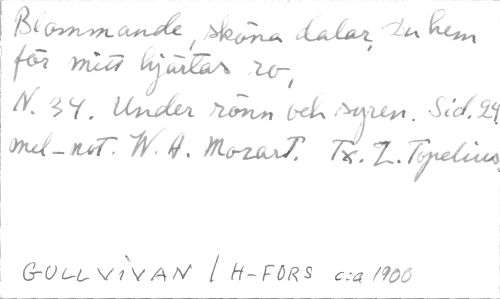 Blommande, sköna dalar, du hem
för mitt hjärtas ro,
N. 34. Under rönn och syren. Sid. 24.
mel-not. W. A. Mozart. Tx. Z. Topelius.
GULLVIVAN / H-FORS c:a 1900